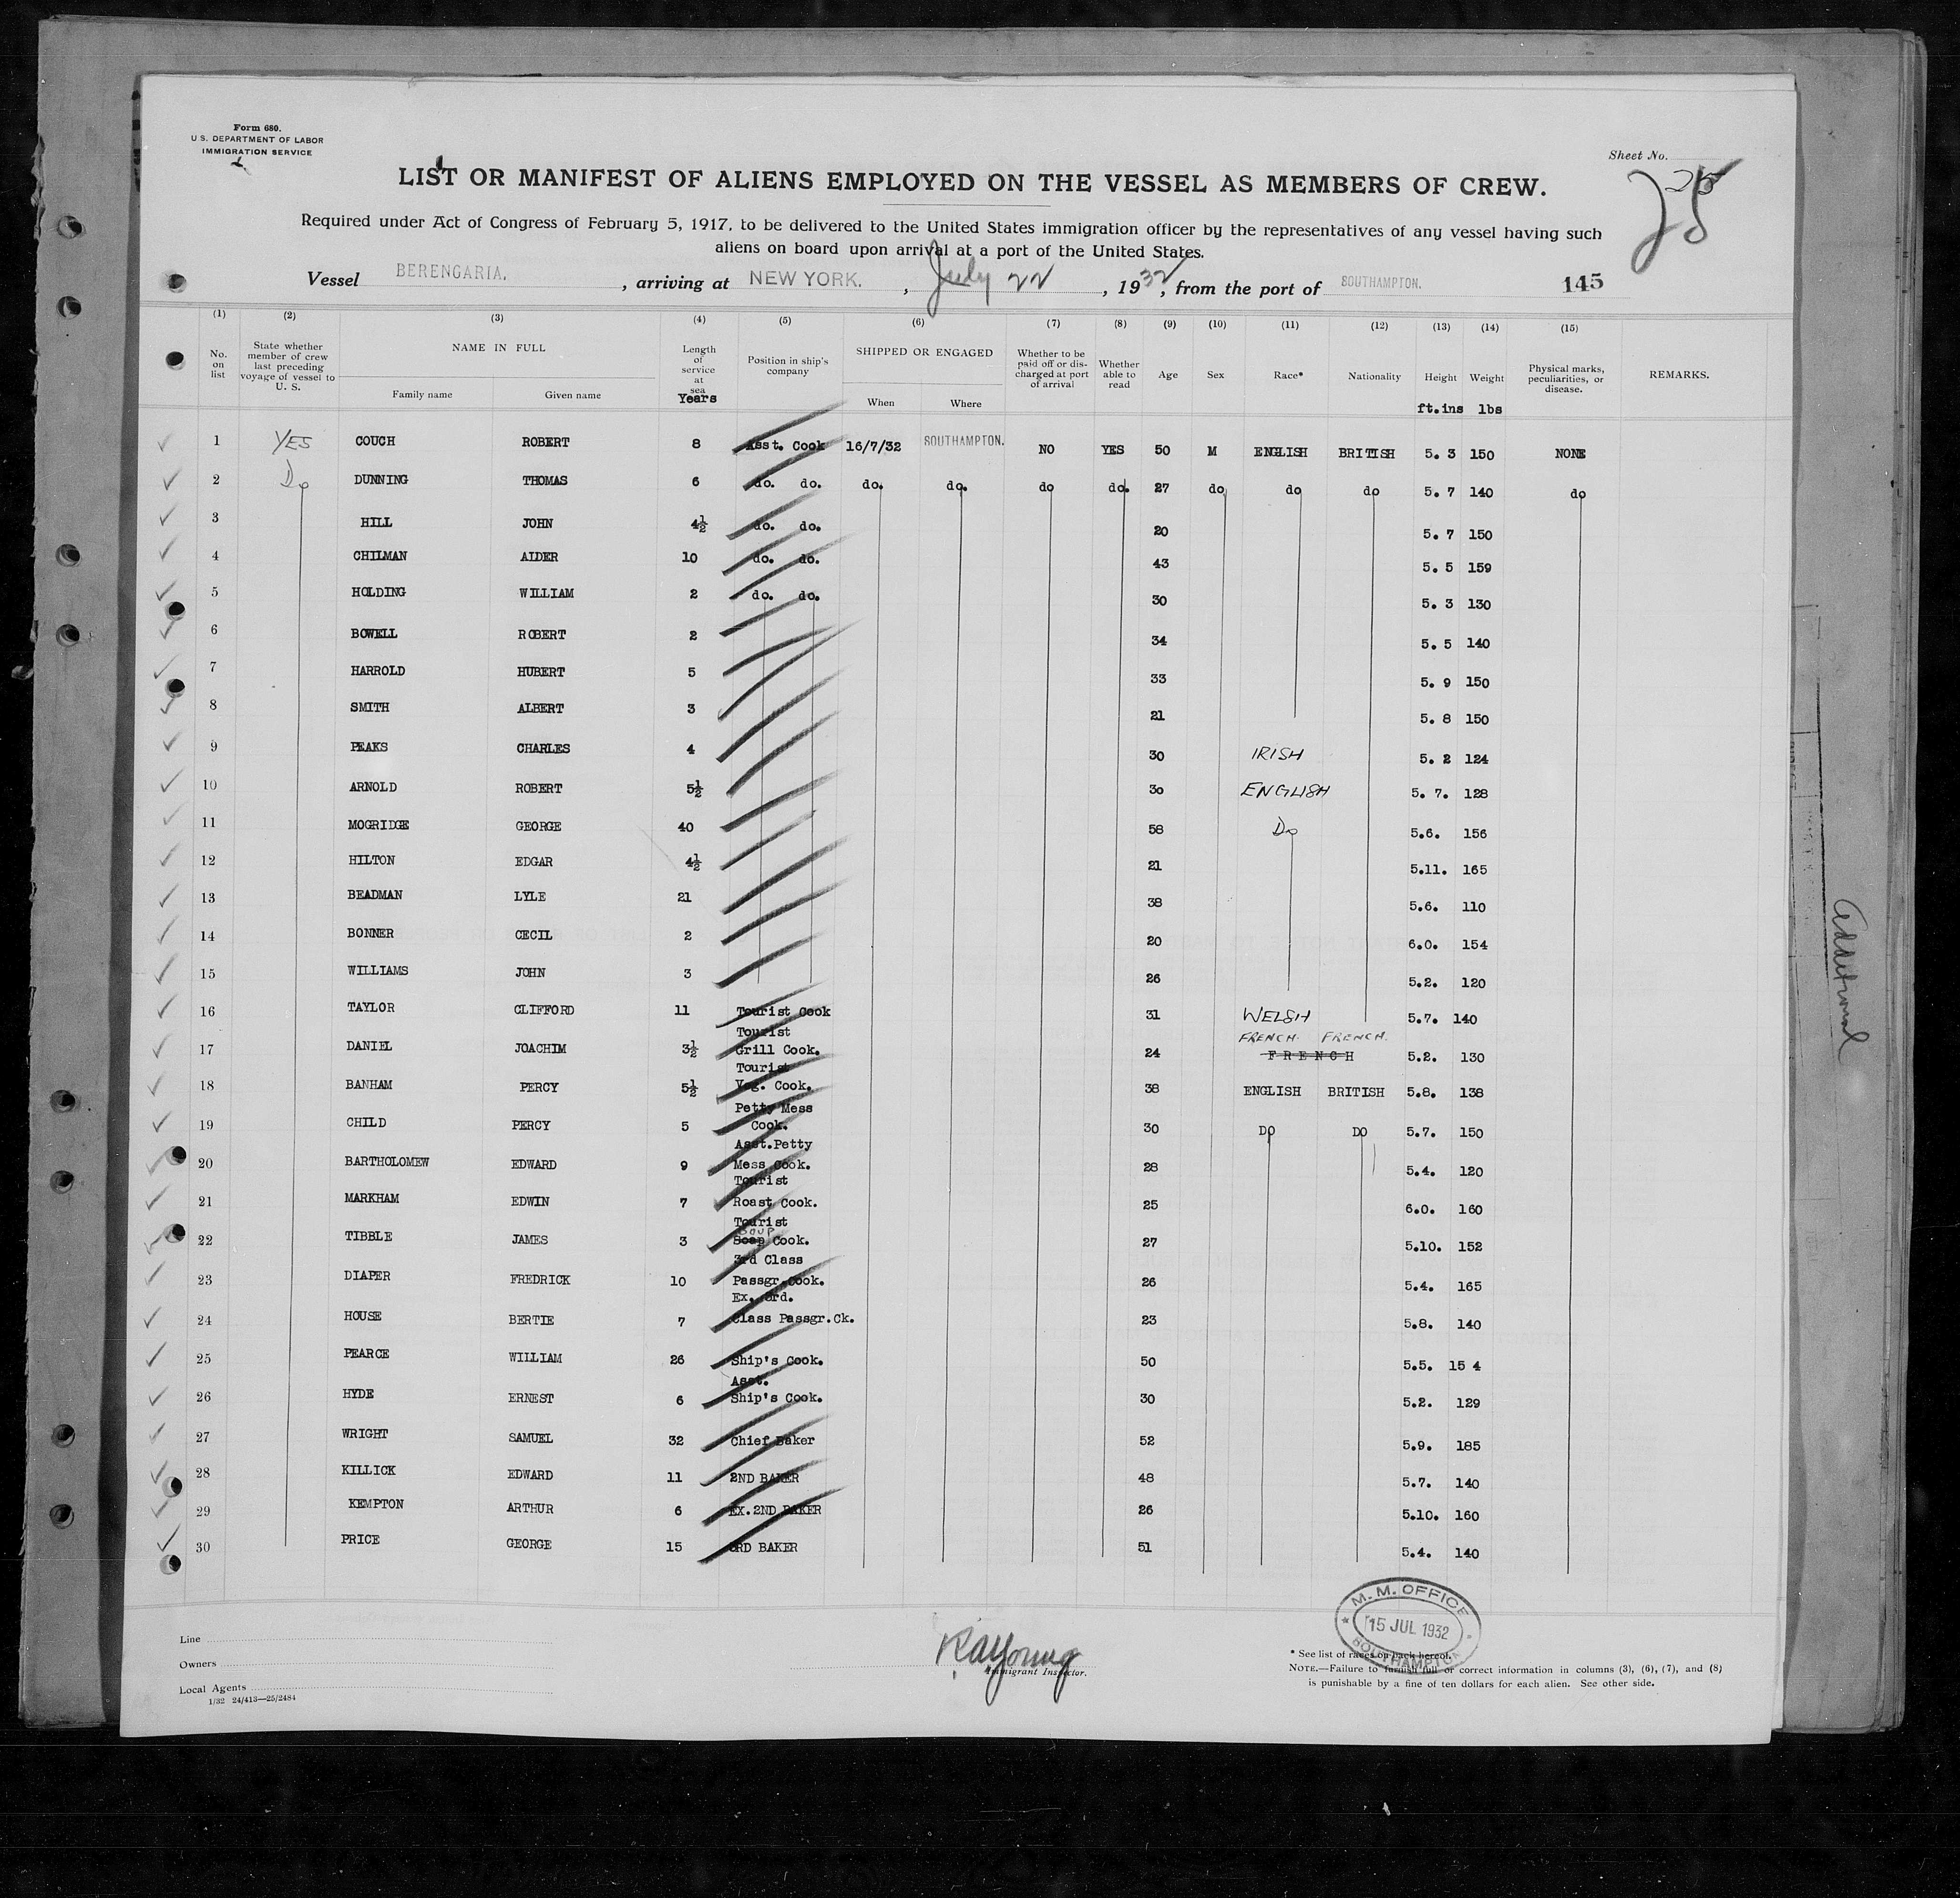 Form 680.
U. S. DEPARTMENT OF LABOR
IMMIGRATION SERVICE
Sheet No.
25
LIST OR MANIFEST OF ALIENS EMPLOYED ON THE VESSEL AS MEMBERS OF CREW.
Required under Act of Congress of February 5, 1917, to be delivered to the United States immigration officer by the representatives of any vessel having such
aliens on board upon arrival at a port of the United States.
Vessel BERENGARIA. , arriving at NEW YORK. , July 22 , 1932, from the port of SOUTHAMPTON. 145
(1) (2) (3) (4) (5) (6) (7) (8) (9) (10) (11) (12) (13) (14) (15)
No. on list State whether member of crew last preceding voyage of vessel to U. S. NAME IN FULL Family name Given name Length of service at sea Years Position in ship's company SHIPPED OR ENGAGED When Where Whether to be paid off or discharged at port of arrival Whether able to read Age Sex Race* Nationality Height ft.ins Weight lbs Physical marks, peculiarities, or disease. REMARKS.
1 YES COUCH ROBERT 8 Asst. Cook 16/7/32 SOUTHAMPTON. NO YES 50 M ENGLISH BRITISH 5. 3 150 NONE
2 Do DUNNING THOMAS 6 do. do. do. do. do do. 27 do do do 5. 7 140 do
3 HILL JOHN 4½ do. do. 20 5. 7 150
4 CHILMAN AIDER 10 do. do. 43 5. 5 159
5 HOLDING WILLIAM 2 do. do. 30 5. 3 130
6 BOWELL ROBERT 2 34 5. 5 140
7 HARROLD HUBERT 5 33 5. 9 150
8 SMITH ALBERT 3 21 5. 8 150
9 PEAKS CHARLES 4 30 IRISH 5. 2 124
10 ARNOLD ROBERT 5½ 30 ENGLISH 5. 7. 128
11 MOGRIDGE GEORGE 40 58 Do 5.6. 156
12 HILTON EDGAR 4½ 21 5.11. 165
13 BEADMAN LYLE 21 38 5.6. 110
14 BONNER CECIL 2 20 6.0. 154
15 WILLIAMS JOHN 3 26 5.2. 120
16 TAYLOR CLIFFORD 11 Tourist Cook 31 WELSH 5.7. 140
17 DANIEL JOACHIM 3½ Tourist Grill Cook. 24 FRENCH. FRENCH. FRENCH 5.2. 130
18 BANHAM PERCY 5½ Tourist Veg. Cook. 38 ENGLISH BRITISH 5.8. 138
19 CHILD PERCY 5 Petty Mess Cook. 30 DO DO 5.7. 150
20 BARTHOLOMEW EDWARD 9 Asst.Petty Mess Cook. 28 5.4. 120
21 MARKHAM EDWIN 7 Tourist Roast Cook. 25 6.0. 160
22 TIBBLE JAMES 3 Tourist SOUP Soap Cook. 27 5.10. 152
23 DIAPER FREDRICK 10 3rd Class Passgr.Cook. 26 5.4. 165
24 HOUSE BERTIE 7 Ex. 3rd. Class Passgr.Ck. 23 5.8. 140
25 PEARCE WILLIAM 26 Ship's Cook. 50 5.5. 15 4
26 HYDE ERNEST 6 Asst. Ship's Cook. 30 5.2. 129
27 WRIGHT SAMUEL 32 Chief Baker 52 5.9. 185
28 KILLICK EDWARD 11 2ND BAKER 48 5.7. 140
29 KEMPTON ARTHUR 6 EX.2ND BAKER 26 5.10. 160
30 PRICE GEORGE 15 3RD BAKER 51 5.4. 140
Line
Owners
Local Agents
1/32 24/413—25/2484
RAYoung
Immigrant Inspector.
M. M. OFFICE
15 JUL 1932
SOUTHAMPTON
* See list of races on back hereof.
NOTE.—Failure to furnish full or correct information in columns (3), (6), (7), and (8)
is punishable by a fine of ten dollars for each alien. See other side.
Additional